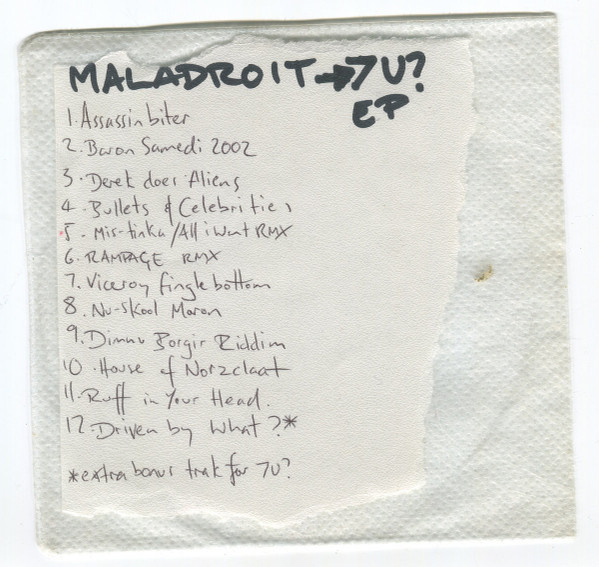 MALADROIT → 7U?
EP
1. Assassin biter
2. Baron Samedi 2002
3. Derek does Aliens
4. Bullets & Celebrities
5. Mis-tinka/All i want RMX
6. RAMPAGE RMX
7. Viceroy fingle bottom
8. Nu-Skool Moron
9. Dimnu Borgir Riddim
10. House of Norzclaat
11. Ruff in Your Head.
12. Driven by What?*
*extra bonus trak for 7U?